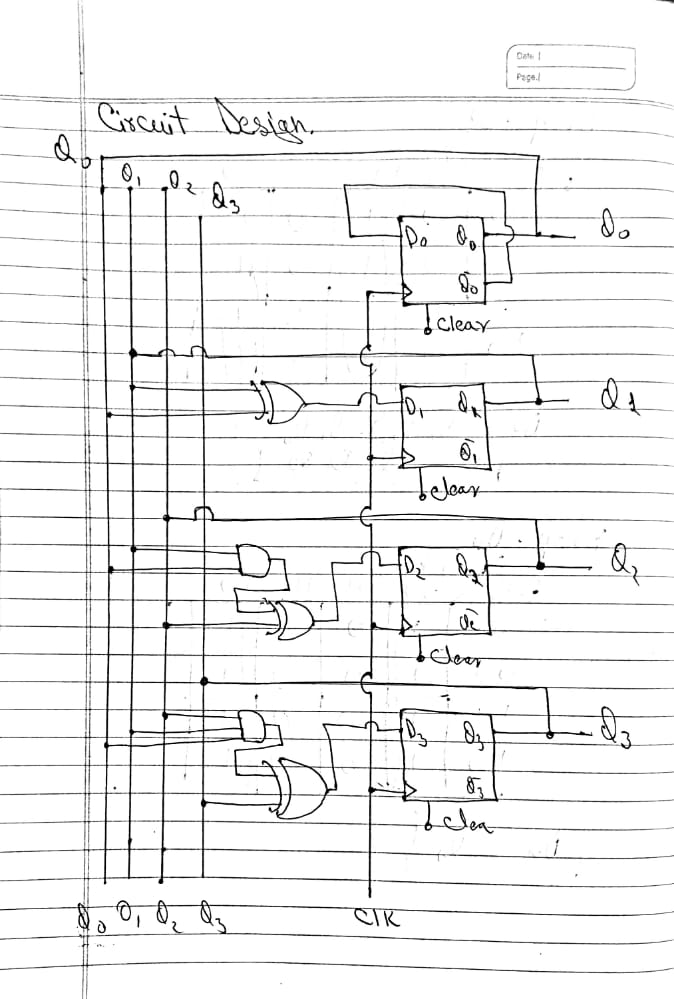 Date |
Page |
Circuit Design.
Q0
Q1 Q2 Q3
D0 Q0 Q0
Q̅0
Clear
D1 Q1 Q1
Q̅1
Clear
D2 Q2 Q2
Clear
D3 Q3 Q3
Q̅3
Clea
Q0 Q1 Q2 Q3 CLK